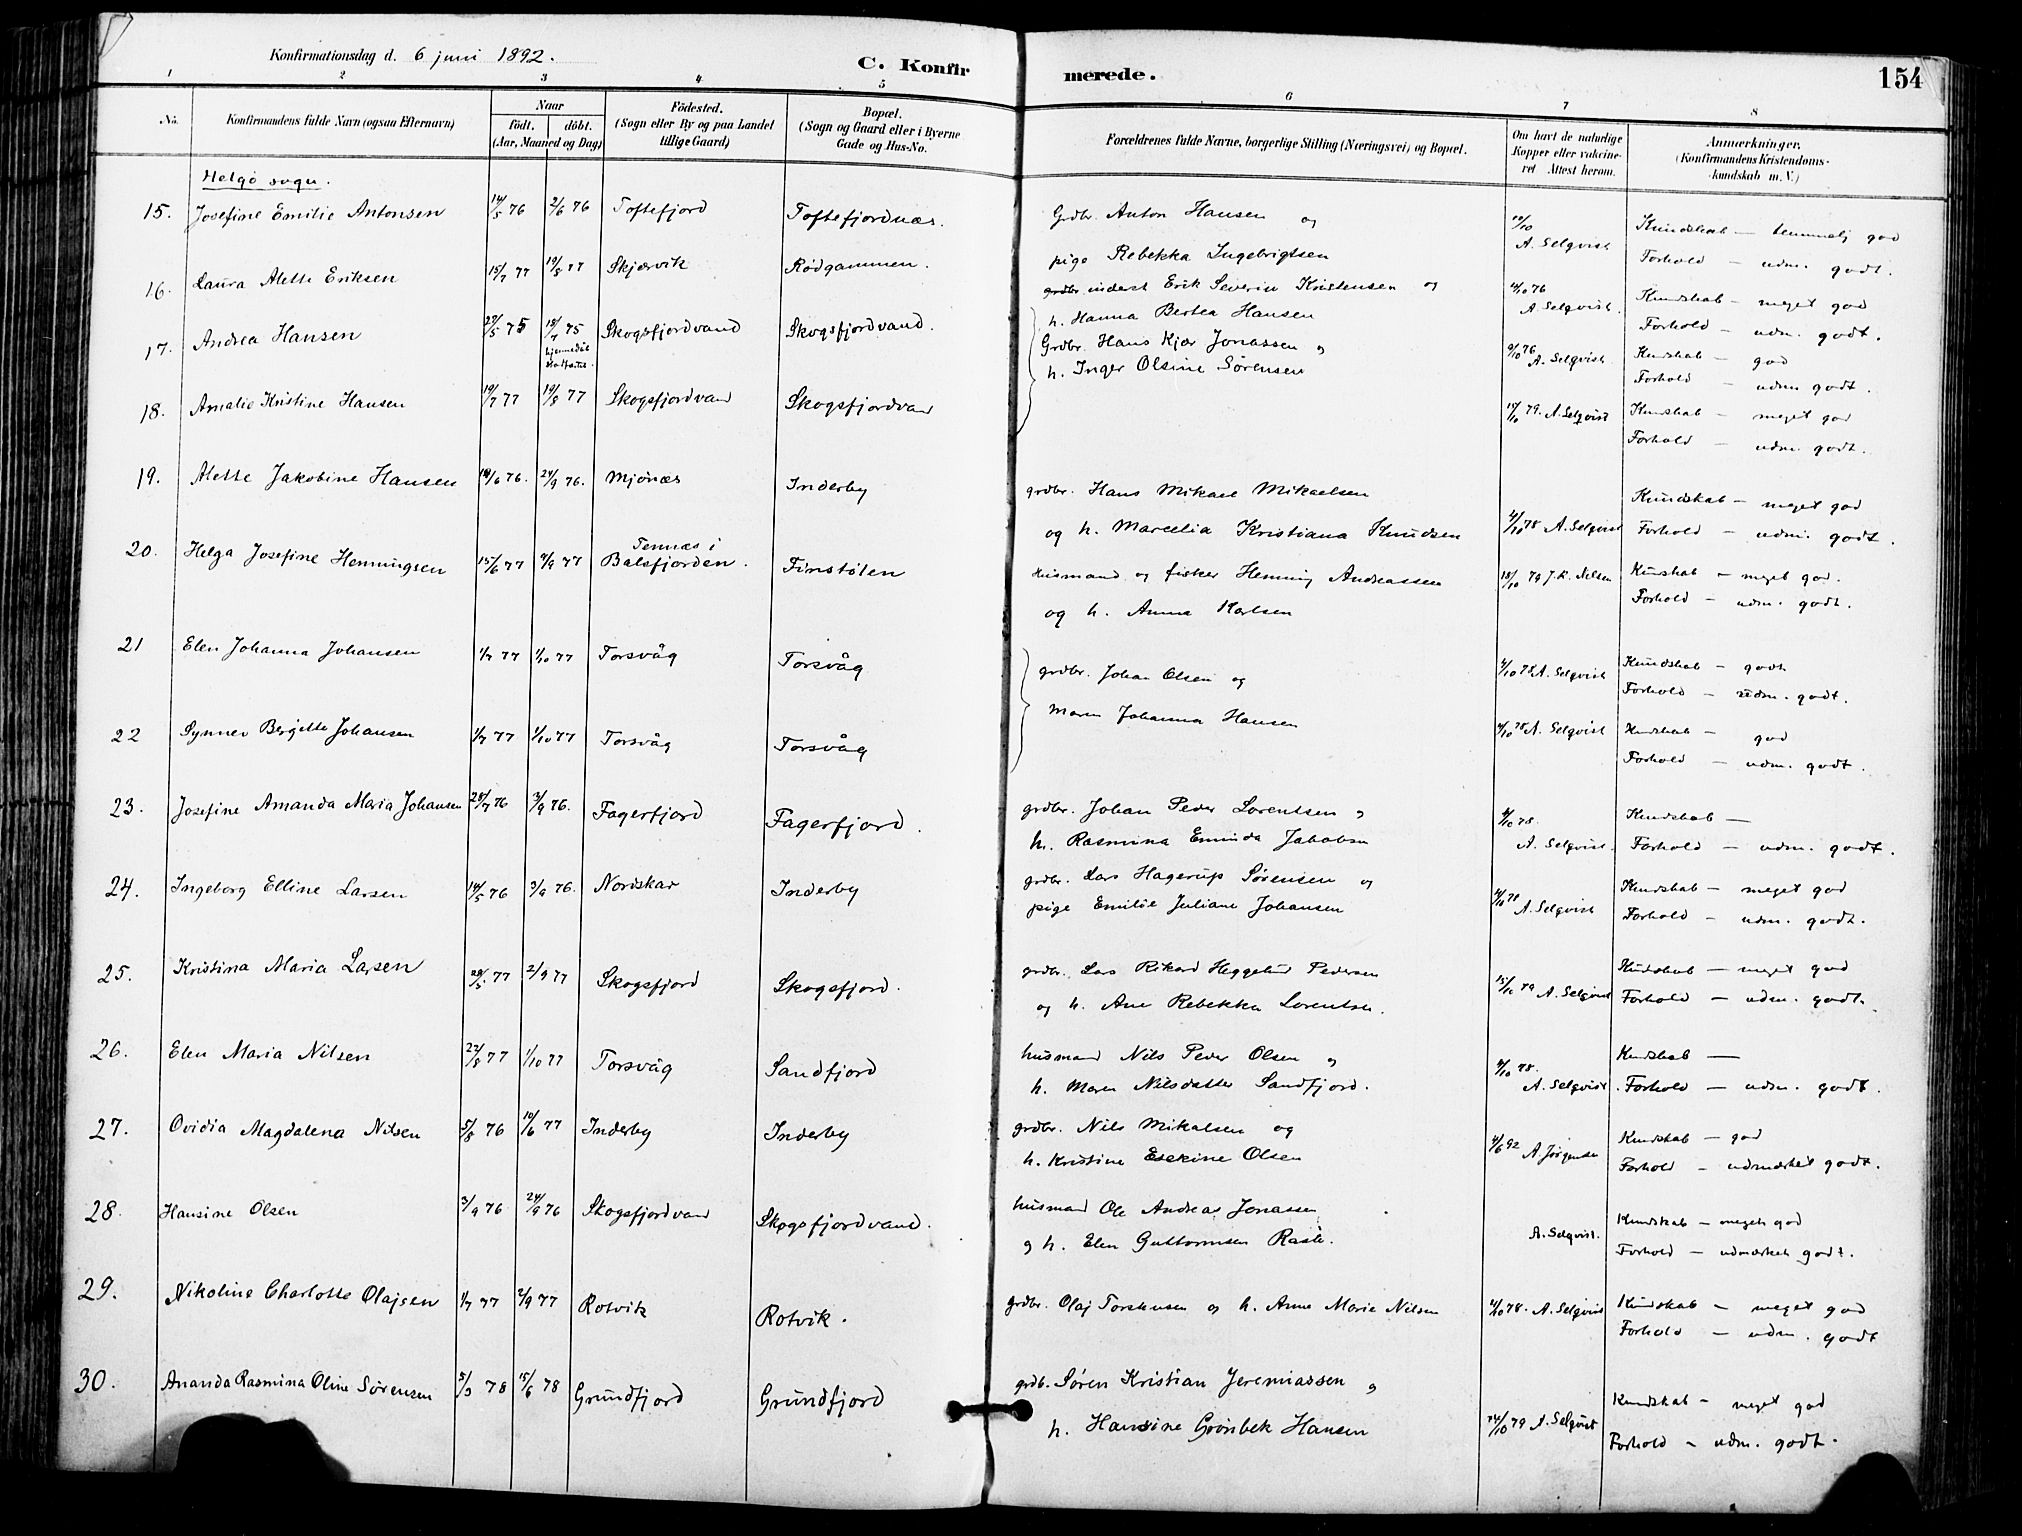 Konfirmationsdag d. 6 juni 1892.
C. Konfirmerede.
154
1 2 3 4 5 6 7 8
No. Konfirmandens fulde Navn (ogsaa Efternavn) Naar födt. döbt. (Aar, Maaned og Dag) Födested. (Sogn eller By og paa Landet tillige Gaard) Bopæl. (Sogn og Gaard eller i Byerne Gade og Hus-No. Forældrenes fulde Navne, borgerlige Stilling (Næringsvei) og Bopæl. Om havt de naturlige Kopper eller vakcineret Attest herom. Anmærkninger. (Konfirmandens Kristendomskundskab m. V.)
Helgø sogn.
15. Josefine Emilie Antonsen 14/5 76 2/6 76 Toftefjord Toftefjordnæs. Grdbr. Anton Hansen og
pige Rebekka Ingebrigtsen A. Selqvist Kundskab – temmelig god
Forhold – udm. godt.
16. Laura Alette Eriksen 15/7 77 19/8 77 Skjærvik Rødgammen. grdbr. inderst Erik Severin Kristensen og
h. Hanna Bertea Hansen A. Selqvist. Kundskab – meget god
Forhold – udm. godt.
17. Andrea Hansen 27/5 75 18/7 75 Skogsfjordvand Skogsfjordvand. Grdbr. Hans Kjær Jonassen og
h. Inger Olsine Sørensen 9/10 76 A. Selqvist. Kundskab – god
Forhold – udm. godt.
18. Amalie Kristine Hansen 19/7 77 19/8 77 Skogsfjordvand Skogsfjordvand 18/10 79. A. Selqvist Kundskab – meget god
Forhold – udm. godt.
19. Alette Jakobine Hansen 18/6 76. 24/9 76. Mjónæs Inderby grdbr. Hans Mikael Mikaelsen
og h. Marcelia Kristiana Knudsen 4/10 78 A. Selqvist Kundskab – meget god
Forhold – udm. godt.
20. Helga Josefine Henningsen 15/6 77 9/9 77 Tennæs i
Balsfjorden. Finstølen Husmand og fisker Henning Andreassen
og h. Anna Karlsen 18/10 79 J. R. Nilsen Kundskab – meget god.
Forhold – udm. godt.
21 Elen Johanna Johansen 1/7 77 1/10 77 Torsvåg Torsvåg grdbr. Johan Olsen og
Maren Johanna Hansen 4/10 78 A. Selqvist Kundskab – godt
Forhold – udm. godt.
22 Synnev Bergitte Johansen 1/7 77 1/10 77 Torsvåg Torsvåg 4/10 78 A. Selqvist Kundskab – god
Forhold – udm. godt.
23. Josefine Amanda Maria Johansen 28/7 76 3/9 76. Fagerfjord Fagerfjord. grdbr. Johan Peder Lorentsen og
h. Rasmina Eminda Jakobsen 4/10 78. A. Selqvist. Kundskab –
Forhold – udm. godt.
24. Ingeborg Elline Larsen 14/5 76 3/9 76. Nordskar Inderby grdbr. Lars Hagerup Sørensen og
pige Emilie Juliane Johansen 4/10 78 A. Selqvist Kundskab – meget god
Forhold – udm. godt.
25. Kristina Maria Larsen 28/5 77 2/9 77 Skogsfjord Skogsfjord. grdbr. Lars Rikard Heggelund Pedersen
og h. Ane Rebekka Lorentsen. 15/10 79 A. Selqvist Kundskab – meget god
Forhold – udm. godt.
26. Elen Maria Nilsen 22/8 77 1/10 77 Torsvåg Sandfjord husmand Nils Peder Olsen og
h. Maren Nilsdatter Sandfjord. 4/10 78. A. Selqvist. Kundskab –
Forhold – udm. godt.
27. Ovidia Magdalena Nilsen 5/8 76 10/6 77 Inderby Inderby grdbr. Nils Mikalsen og
h. Kristine Eskine Olsen 4/6 92 A Jørgensen Kundskab – god
Forhold – udmærket godt.
28. Hansine Olsen 3/9 76 24/9 76 Skogsfjordvand Skogsfjordvand. husmand Ole Andreas Jonassen
og h. Elen Guttormsen Rasti. A. Selqvist. Kundskab – meget god
Forhold – udmærket godt.
29. Nikoline Charlotte Olajsen 1/7 77 2/9 77 Rotvik Rotvik. grdbr. Olaj Torstensen og h. Anne Marie Nilsen 4/10 78. A. Selqvist Kundskab – meget god
Forhold – udm. godt
30. Ananda Rasmina Oline Sørensen 5/3 78 15/6 78 Grundfjord Grundfjord grdb. Søren Kristian Jeremiassen og
h. Hansine Grönbek Hansen 14/10 79 A. Selqvist Kundskab – meget god
Forhold – udm. godt.